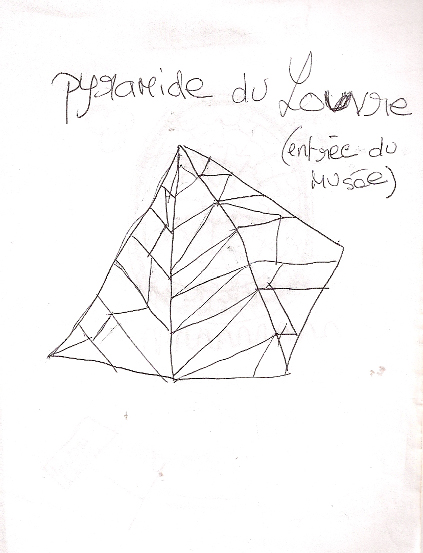 pyramide du Louvre
(entrée du
Musée)